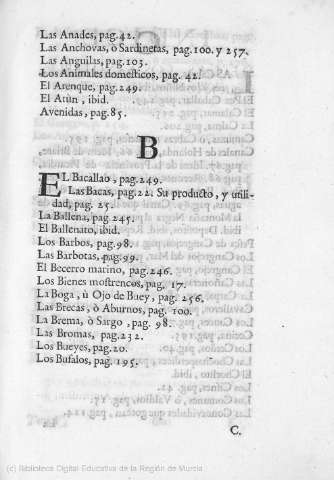 Las Anades, pag.42.
Las Anchovas, ò Sardinetas, pag.100. y 257.
Las Anguilas, pag.103.
Los Animales domesticos, pag. 42.
El Arenque, pag.249.
El Atùn, ibid.
Avenidas, pag.85.
B
EL Bacallao, pag.249.
Las Bacas, pag.22. Su producto, y utili-
dad, pag. 25.
La Ballena, pag.245.
El Ballenato, ibid.
Los Barbos, pag.98.
Las Barbotas, pag.99.
El Becerro marino, pag.246.
Los Bienes mostrencos, pag. 17.
La Boga, ù Ojo de Buey, pag. 256.
Las Brecas, ò Aburnos, pag. 100.
La Brema, ò Sargo, pag. 98.
Las Bromas, pag.232.
Los Bueyes, pag.20.
Los Bufalos, pag. 195.
C.
(c) Biblioteca Digital Educativa de la Región de Murcia